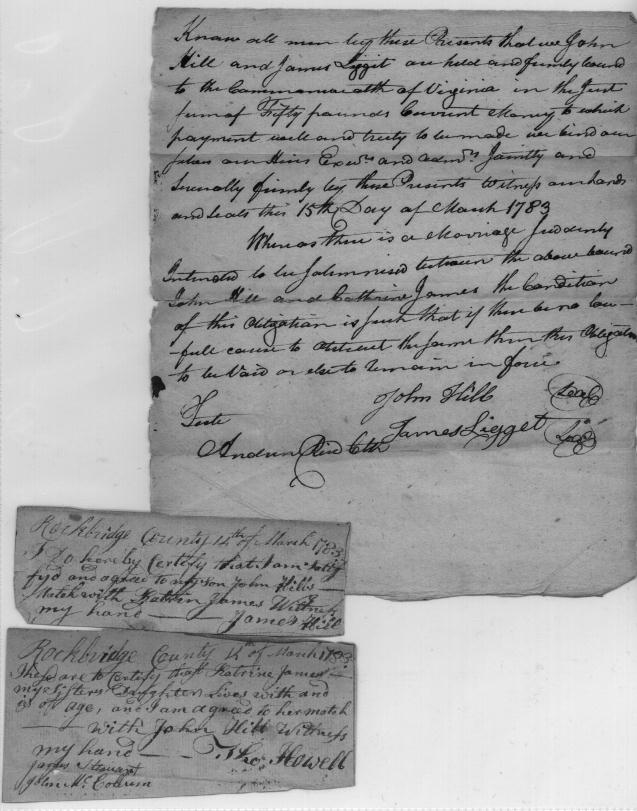 Know all men by these Presents that we John
Hill and James Ligget are held and firmly bound
to the Commonwealth of Virginia in the Just
sum of Fifty pounds Current Money to which
payment well and truly to be made we bind our
selves our Heirs Exrs and admrs Jointly and
Severally firmly by these Presents Witness our hands
and seals this 15th Day of March 1783
Whereas there is a Marriage Suddenly
Intended to be Solemnised between the above bound
John Hill and Catherine James the Condition
of this Obligation is such that if there be no law-
-full cause to obstruct the same then this Obligation
to be Void or else to remain in force
John Hill Seal
Teste
James Ligget Seal
Andrew Reid Clk
Rockbridge County 14th of March 1783
I Do hereby Certify that I am
fyd and agreed to my son John Hills
Match with Katrin James Witness
my hand James Hill
Rockbridge County 14th of March 1783
These are to Certify that Katrine James
my sisters Daughter Lives with and
is of age, and I am agreed to her match
with John Hill Witness
my hand Thos Howell
James Stewart
John Mc